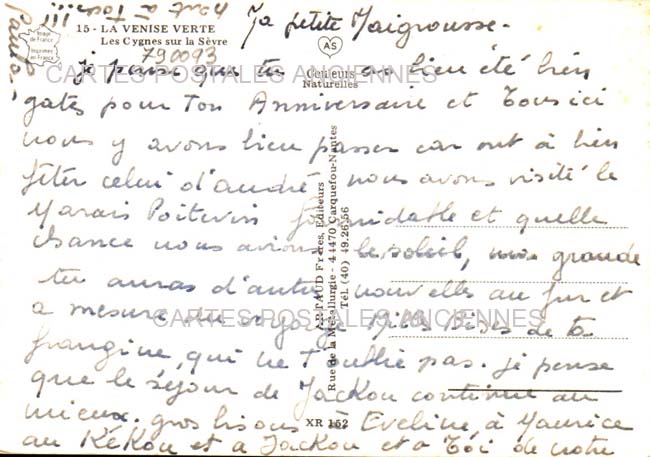 15 - LA VENISE VERTE
Les Cygnes sur la Sèvre
790093
Image de France
Imprimée en France
AS
Couleurs Naturelles
Ma petite Maigrousse.
je pense que tu as bien été bien
gatés pour ton Anniversaire et tous ici
nous y avons bien passer car ont à bien
fêter celui d'andré nous avons visité le
Marais Poitevin formidable et quelle
chance nous avions le soleil, ma grande
tu auras d'autres nouvelles au fur et
a mesure du voyage Mille Bises de ta
frangine, qui ne t'oublie pas. je pense
que le séjour de Jackou continue au
mieux. gros bisous à Eveline, à Maurice
au KéKou et a Jackou et a Toi de notre
part a Tous
ARTAUD Frères, Editeurs
Rue de la Métallurgie - 44470 Carquefou-Nantes
Tél. (40) 49.26.56
XR 152
CARTES POSTALES ANCIENNES
CARTES POSTALES ANCIENNES